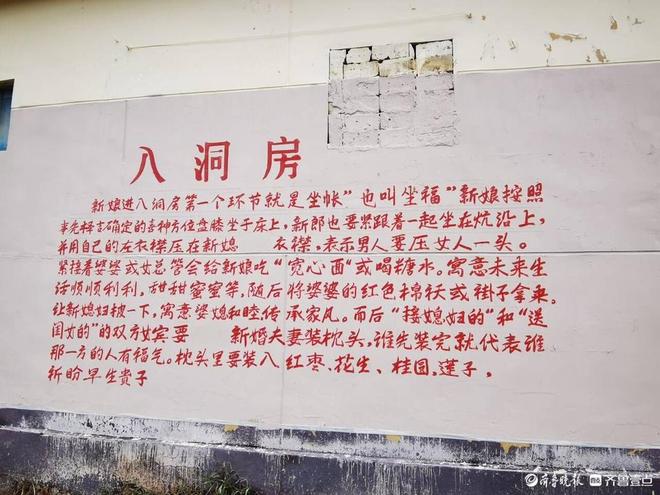 入洞房
新娘进入洞房第一个环节就是坐帐”也叫坐福“新娘按照
事先择吉确定的喜神方位盘膝坐于床上,新郎也要紧跟着一起坐在炕沿上,
并用自己的左衣襟压在新媳 衣襟,表示男人要压女人一头。
紧挨着婆婆或女总管会给新娘吃“宽心面”或喝糖水。寓意未来生
话顺顺利利,甜甜蜜蜜等,随后将婆婆的红色棉袄或褂子拿来。
让新媳妇披一下,寓意婆媳和睦传承家风。而后“接媳妇的”和“送
闺女的”的双方女宾要 新婚夫妻装枕头,谁先装完就代表谁
那一方的人有福气。枕头里要装入红枣、花生、桂圆,莲子,
祈盼早生贵子
齐鲁晚报 齐鲁壹点